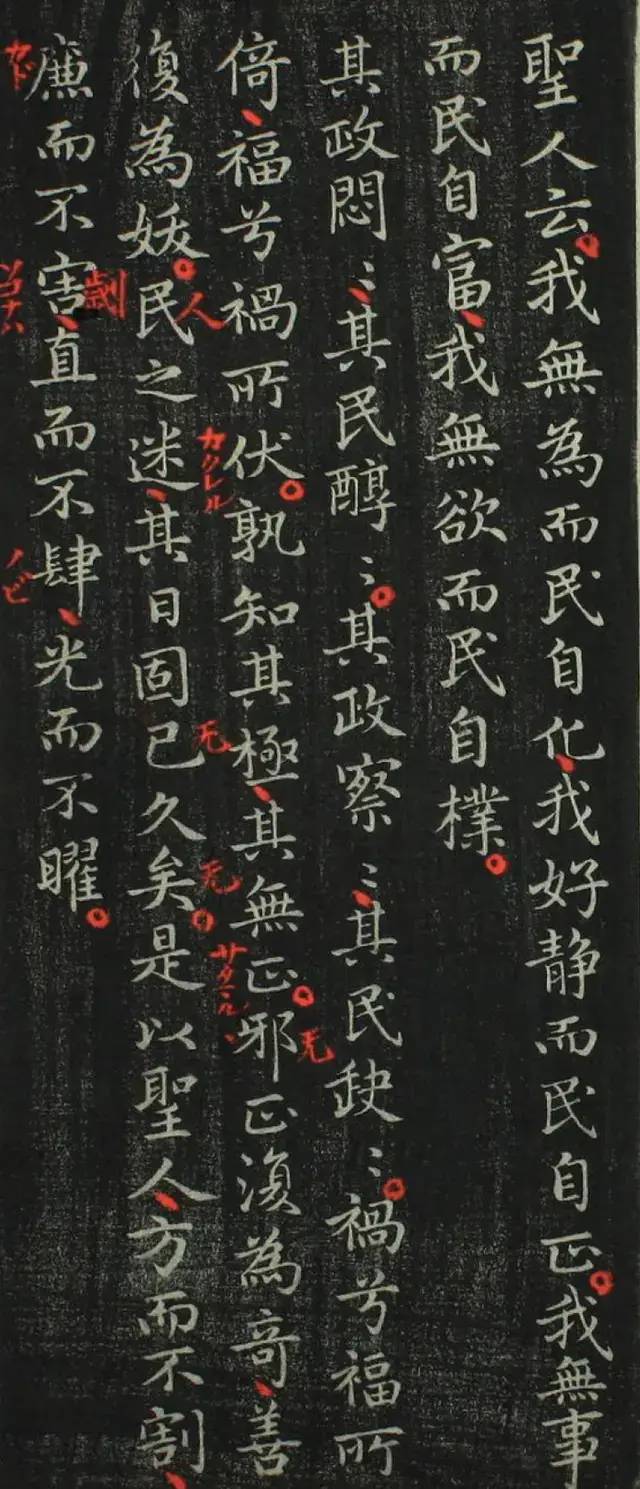 聖人云我無為而民自化我好静而民自正我無事
而民自富我無欲而民自樸
其政悶〻其民醇〻其政察〻其民缺〻禍兮福所
倚福兮禍所伏孰知其極其無正邪正復為奇善
復為妖民之迷其日固已久矣是以聖人方而不割
廉而不害直而不肆光而不曜
人
カクレル
无
无
无
サタマル
劌
カド
ソコナハ
ノビ